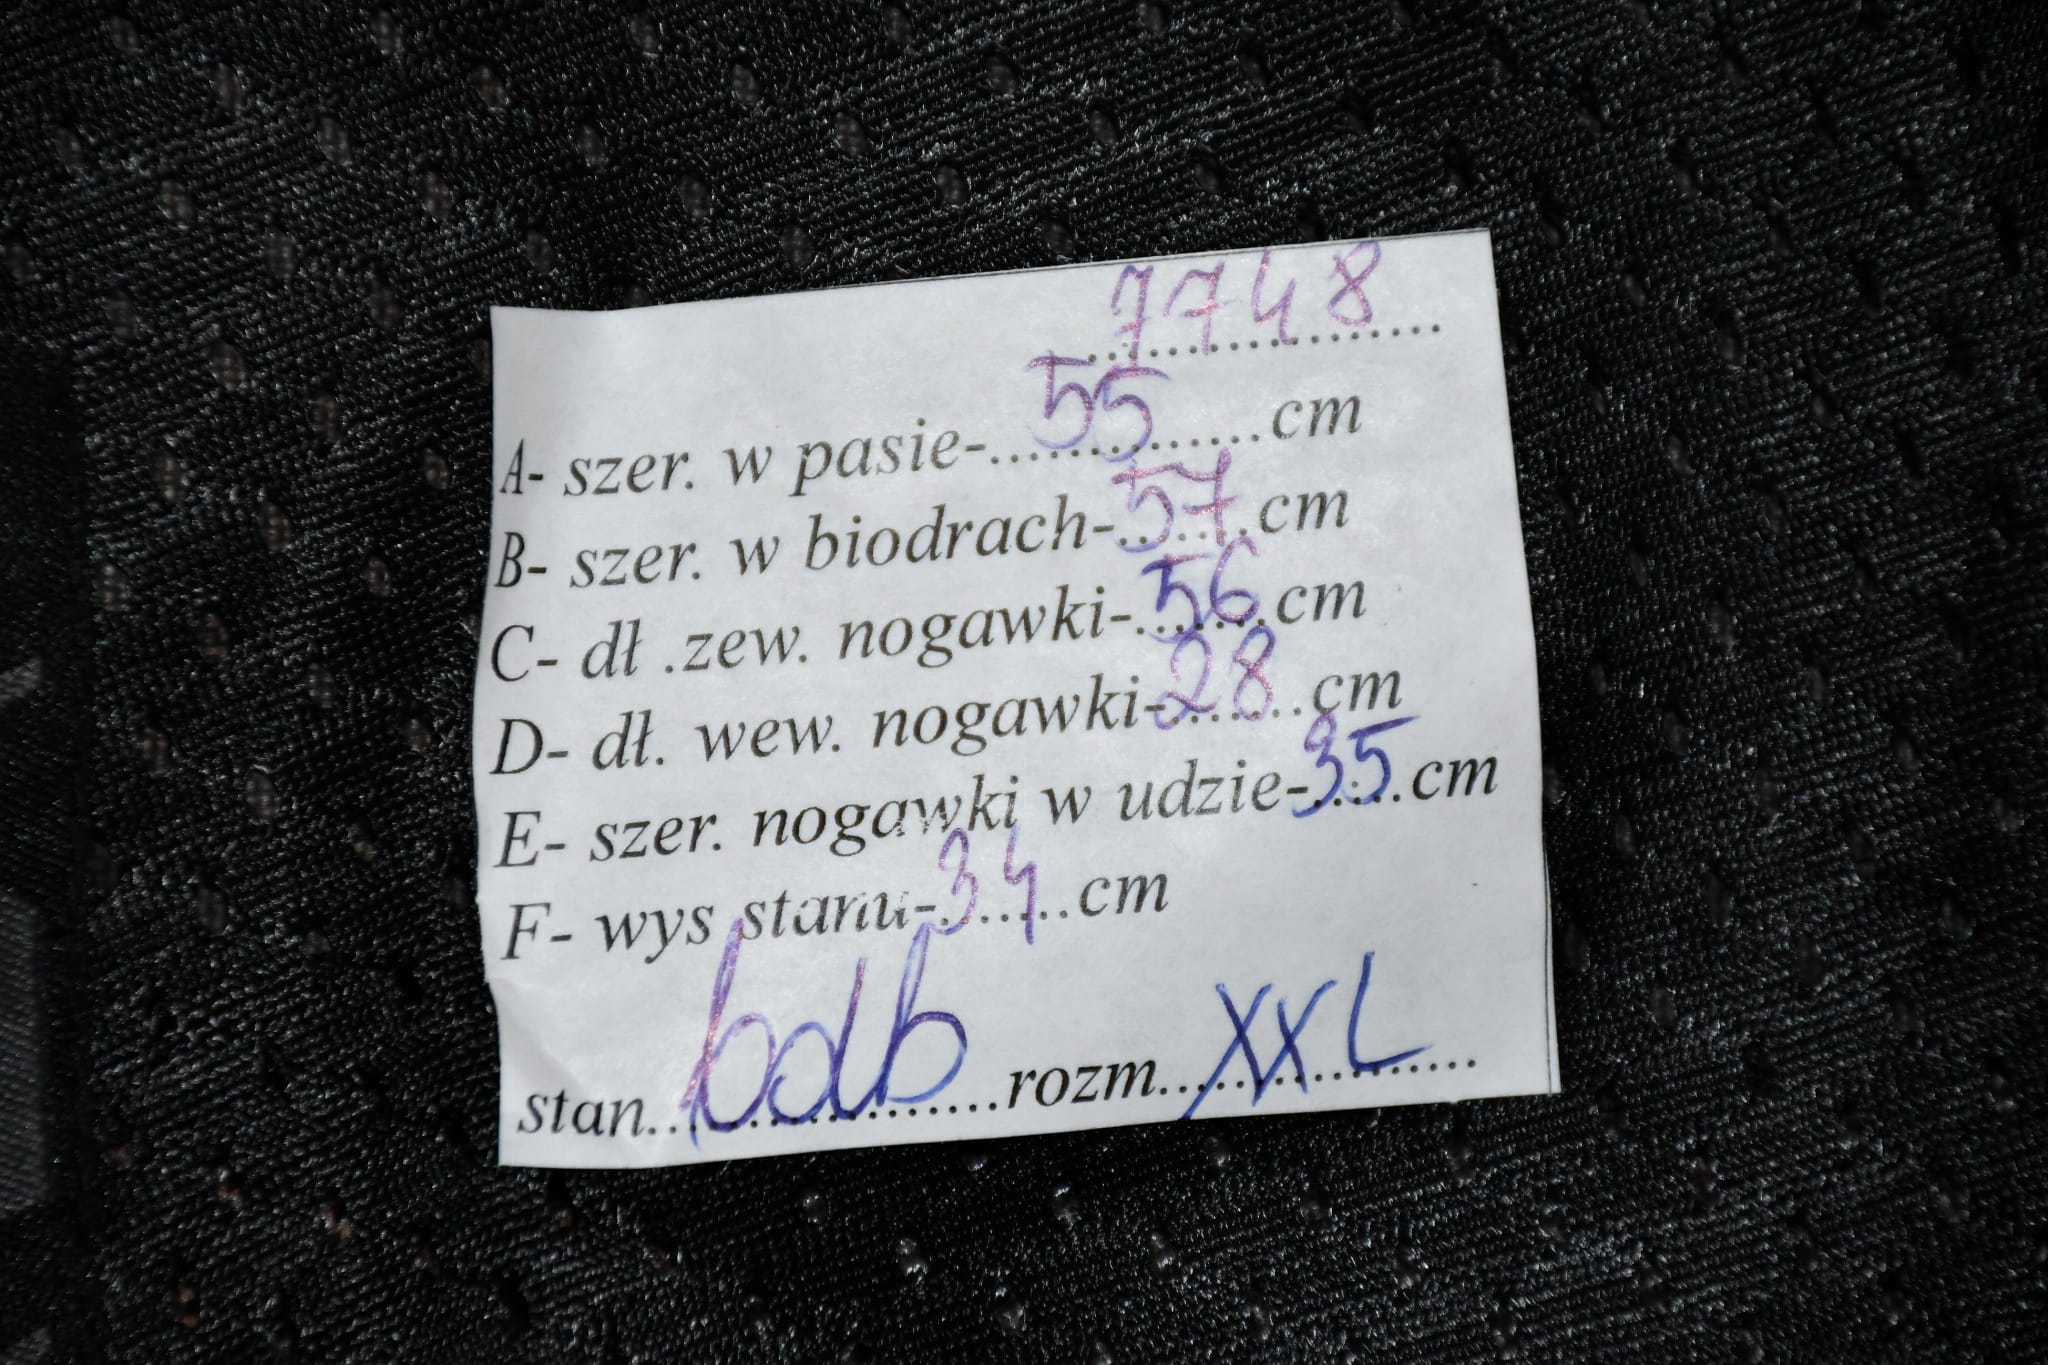 7748
A- szer. w pasie-...55...cm
B- szer. w biodrach-57..cm
C- dł .zew. nogawki-56..cm
D- dł. wew. nogawki-28...cm
E- szer. nogawki w udzie-35..cm
F- wys stanu-34...cm
stan...bdb...rozm...XXL...